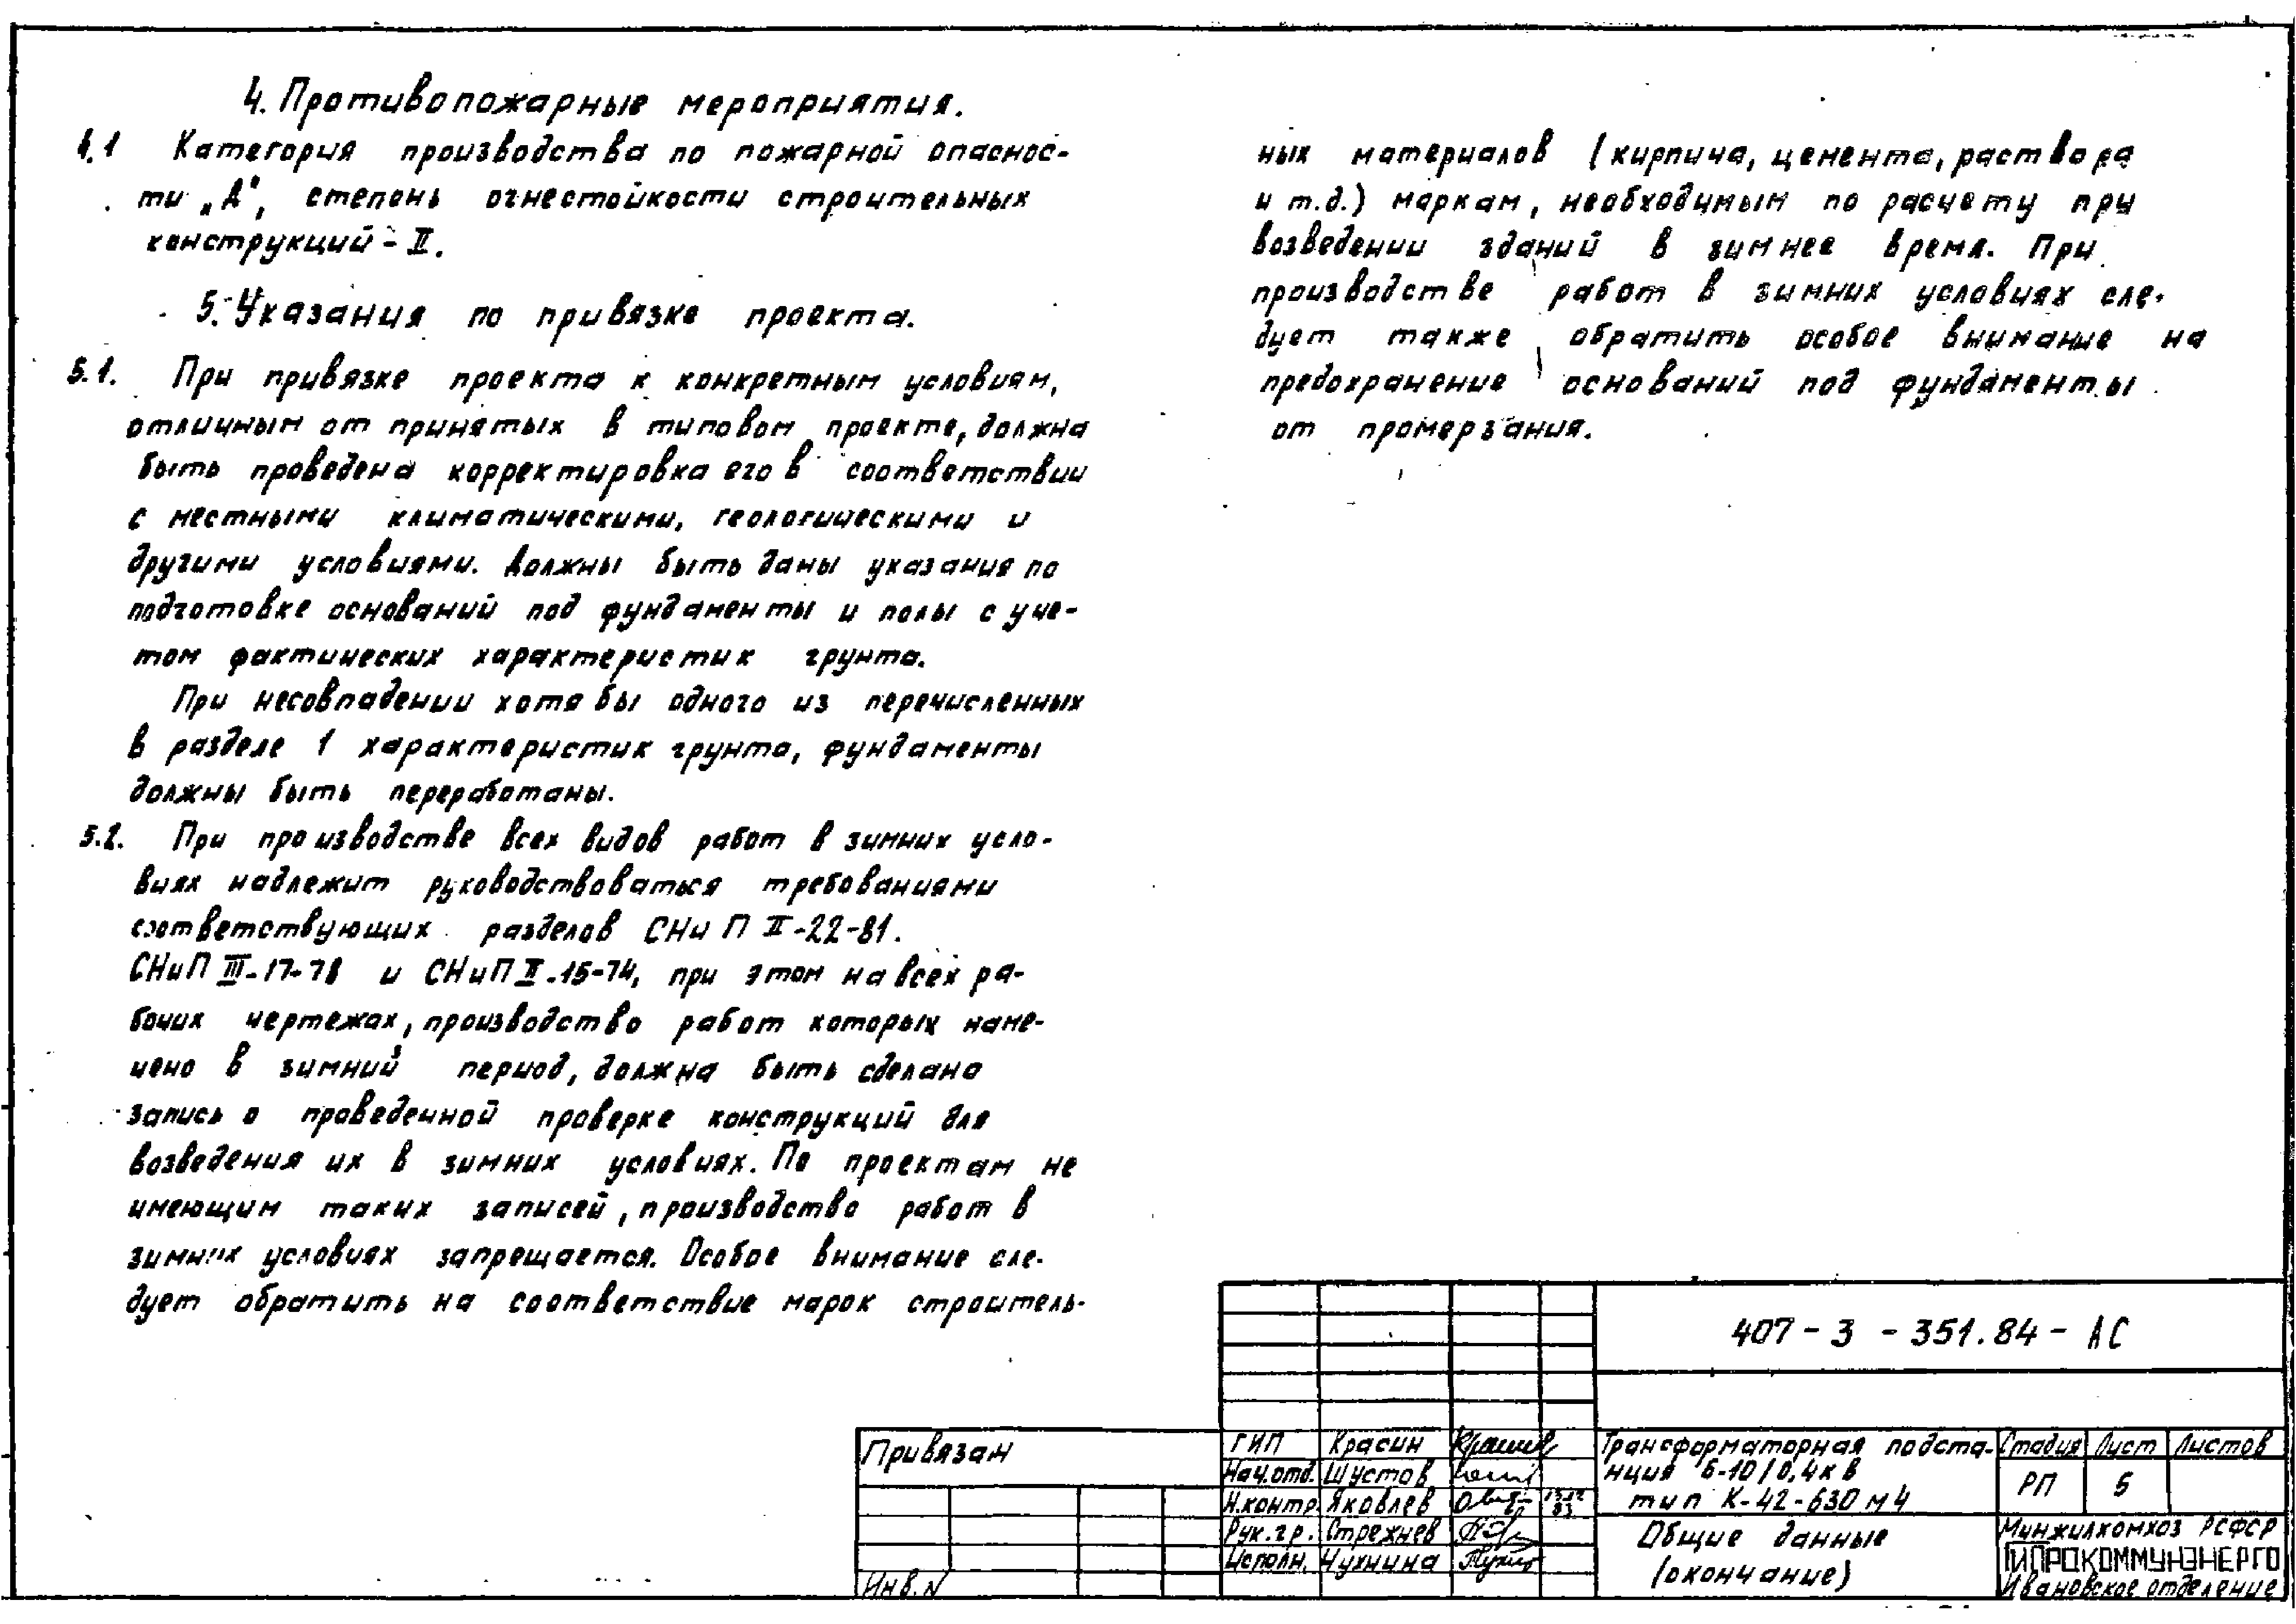 4. Противопожарные мероприятия.
4.1 Категория производства по пожарной опаснос-
ти „Д", степень огнестойкости строительных
конструкций - II.
5. Указания по привязке проекта.
5.1. При привязке проекта к конкретным условиям,
отличным от принятых в типовом проекте, должна
быть проведена корректировка его в соответствии
с местными климатическими, геологическими и
другими условиями. Должны быть даны указания по
подготовке оснований под фундаменты и полы с уче-
том фактических характеристик грунта.
При несовпадении хотя бы одного из перечисленных
в разделе 1 характеристик грунта, фундаменты
должны быть переработаны.
5.2. При производстве всех видов работ в зимних усло-
виях надлежит руководствоваться требованиями
соответствующих разделов СНиП II-22-81.
СНиП III-17-78 и СНиП II-15-74, при этом на всех ра-
бочих чертежах, производство работ которых наме-
чено в зимний период, должна быть сделана
запись о проведенной проверке конструкций для
возведения их в зимних условиях. По проектам не
имеющим таких записей, производство работ в
зимних условиях запрещается. Особое внимание сле-
дует обратить на соответствие марок строитель-
ных материалов (кирпича, цемента, раствора
и т.д.) маркам, необходимым по расчету при
возведении зданий в зимнее время. При
производстве работ в зимних условиях сле-
дует также обратить особое внимание на
предохранение оснований под фундаменты
от промерзания.
407-3-351.84-АС
Привязан
Инв. N
ГИП Красин
Нач.отд. Шустов
Н.контр. Яковлев
Рук.гр. Стрехнев
Исполн. Чухнина
Трансформаторная подста-
нция 6-10/0,4кв
тип К-42-630 м4
Стадия Лист Листов
РП 5
Общие данные
(окончание)
Минжилкомхоз РСФСР
ГИПРОКОММУНЭНЕРГО
Ивановское отделение